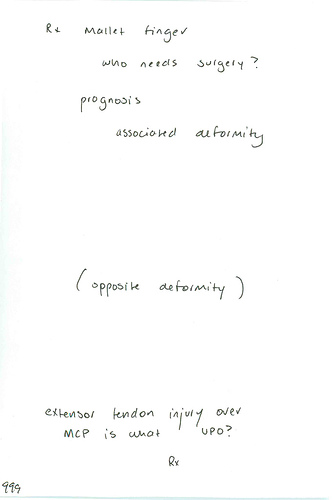 Rx mallet finger
who needs surgery?
prognosis
associated deformity
(opposite deformity)
extensor tendon injury over
MCP is what UPO?
Rx
999